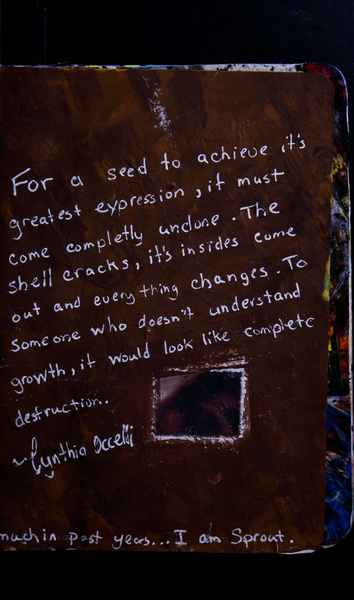 For a seed to achieve it's
greatest expression, it must
come completly undone. The
shell cracks, it's insides come
out and everything changes. To
someone who doesn't understand
growth, it would look like complete
destruction.
~Cynthia Occelli
much in past years... I am Sprout.